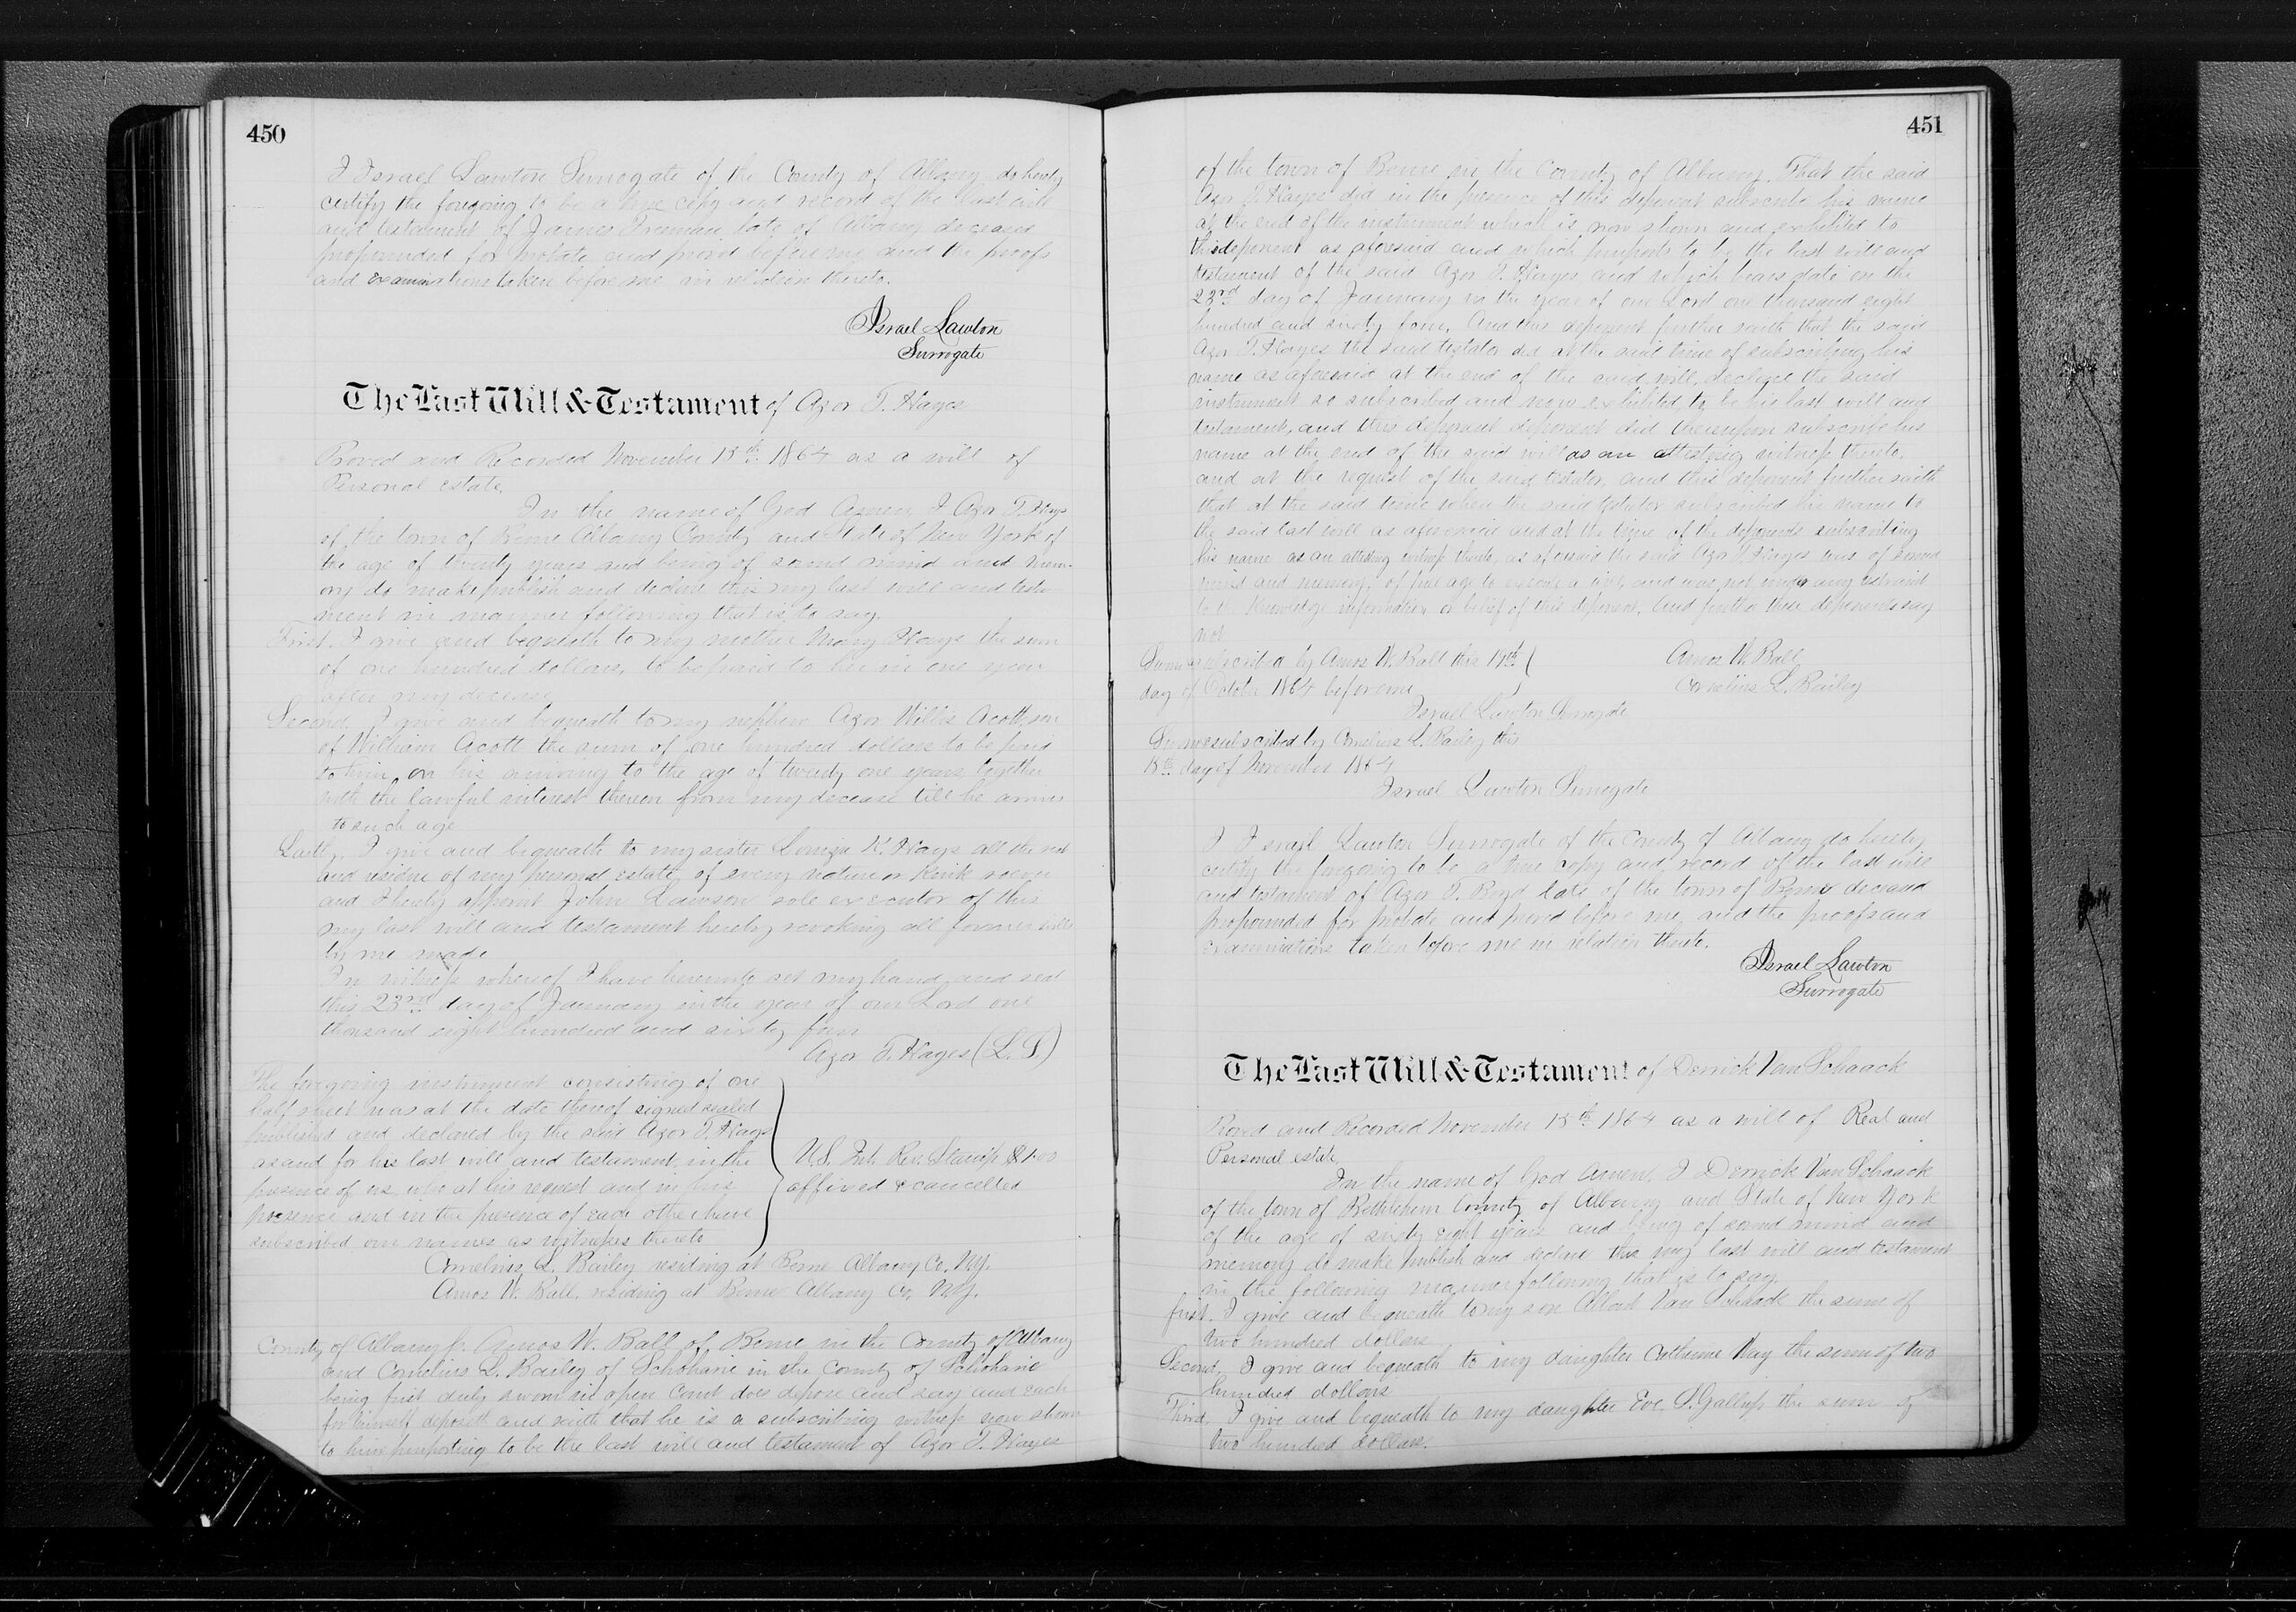 450
I Israel Lawton Surrogate of the County of Albany do hereby
certify the foregoing to be a true copy and record of the last will
and testament of James Freeman late of Albany deceased
propounded for probate and proved before me and the proofs
and examinations taken before me in relation thereto.
Israel Lawton
Surrogate
The Last Will & Testament of Azor T. Hayes
Proved and Recorded November 15th 1864 as a will of
Personal estate,
In the name of God Amen, I Azor T. Hays
of the town of Berne Albany County and State of New York of
the age of twenty years and being of sound mind and mem-
ory do make publish and declare this my last will and testa
ment in manner following that is to say.
First. I give and bequeath to my mother Mary Hays the sum
of one hundred dollars, to be paid to her in one year
after my decease
Second, I give and bequeath to my nephew Azor Willis Acott, son
of William Acott the sum of one hundred dollars to be paid
to him on his arriving to the age of twenty one years together
with the lawful interest thereon from my decease till he arrives
to such age
Lastly, I give and bequeath to my sister Louiza K. Hays all the rest
and residue of my personal estate, of every nature or kink
and I hereby appoint John Lawson sole executor of this
my last will and testament hereby revoking all former wills
by me made
In witness whereof I have hereunto set my hand and seal
this 23rd day of January in the year of our Lord one
thousand eight hundred and sixty four
Azor T. Hayes (L. S.)
The foregoing instrument consisting of one
half sheet was at the date thereof signed sealed
published and declared by the said Azor T. Hays
as and for his last will and testament, in the
presence of us, who at his request and in his
presence and in the presence of each other have
subscribed our names as witnesses thereto
U.S. Int. Rev. Stamp $1.00
affixed & cancelled
Cornelius L. Bailey residing at Berne Albany Co. N.Y.
Amos W. Ball, residing at Berne Albany Co. N.Y.
County of Albany ss. Amos W. Ball of Berne in the County of Albany
and Cornelius L. Bailey of Schoharie in the County of Schoharie
being first duly sworn in open Court does depose and say and each
for himself deposeth and saith that he is a subscribing witness now shown
to him purporting to be the last will and testament of Azor T. Hayes
451
of the town of Berne in the County of Albany. That the said
Azor T. Hayes did in the presence of this deponent subscribe his name
at the end of the instrument which is now shown and exhibited to
this deponent as aforesaid and which purports to be the last will and
testament of the said Azor T. Hayes and which bears date on the
23rd day of January in the year of our Lord one thousand eight
hundred and sixty four, And this deponent further saith that the said
Azor T. Hayes the said testator did at the said time of subscribing his
name as aforesaid at the end of the said will, declare the said
instrument so subscribed and now exhibited, to be his last will and
testament, and this deponent deponent did thereupon subscribe his
name at the end of the said will as an attesting witness thereto,
and at the request of the said testator, and this deponent further saith
that at the said time when the said testator subscribed his name to
the said last will as aforesaid and at the time of the deponents subscribing
his name as an attesting witness thereto, as aforesaid the said Azor T. Hayes was of sound
mind and memory, of full age to execute a will, and was not under any restraint
to the knowledge information or belief of this deponent, And further these deponents say
not
Sworn & subscribed by Amos W. Ball this 17th
day of October 1864 before me
Israel Lawton Surrogate
Amos W. Ball
Cornelius L. Bailey
Sworn & subscribed by Cornelius L. Bailey this
15th day of November 1864
Israel Lawton Surrogate
I Israel Lawton Surrogate of the County of Albany do hereby
certify the foregoing to be a true copy and record of the last will
and testament of Azor T. Boyd late of the town of Berne deceased
propounded for probate and proved before me, and the proofs and
examinations taken before me in relation thereto.
Israel Lawton
Surrogate
The Last Will & Testament of Derrick Van Schaack
Proved and Recorded November 15th 1864 as a will of Real and
Personal estate,
In the name of God Amen. I Derrick Van Schaack
of the town of Bethlehem County of Albany and State of New York
of the age of sixty eight years and being of sound mind and
memory do make publish and declare this my last will and testament
in the following manner following that is to say.
first. I give and bequeath to my son Albert Van Schaack the sum of
two hundred dollars
Second, I give and bequeath to my daughter Catherine Way the sum of two
hundred dollars
Third. I give and bequeath to my daughter Eve S. Gallup the sum of
two hundred dollars.